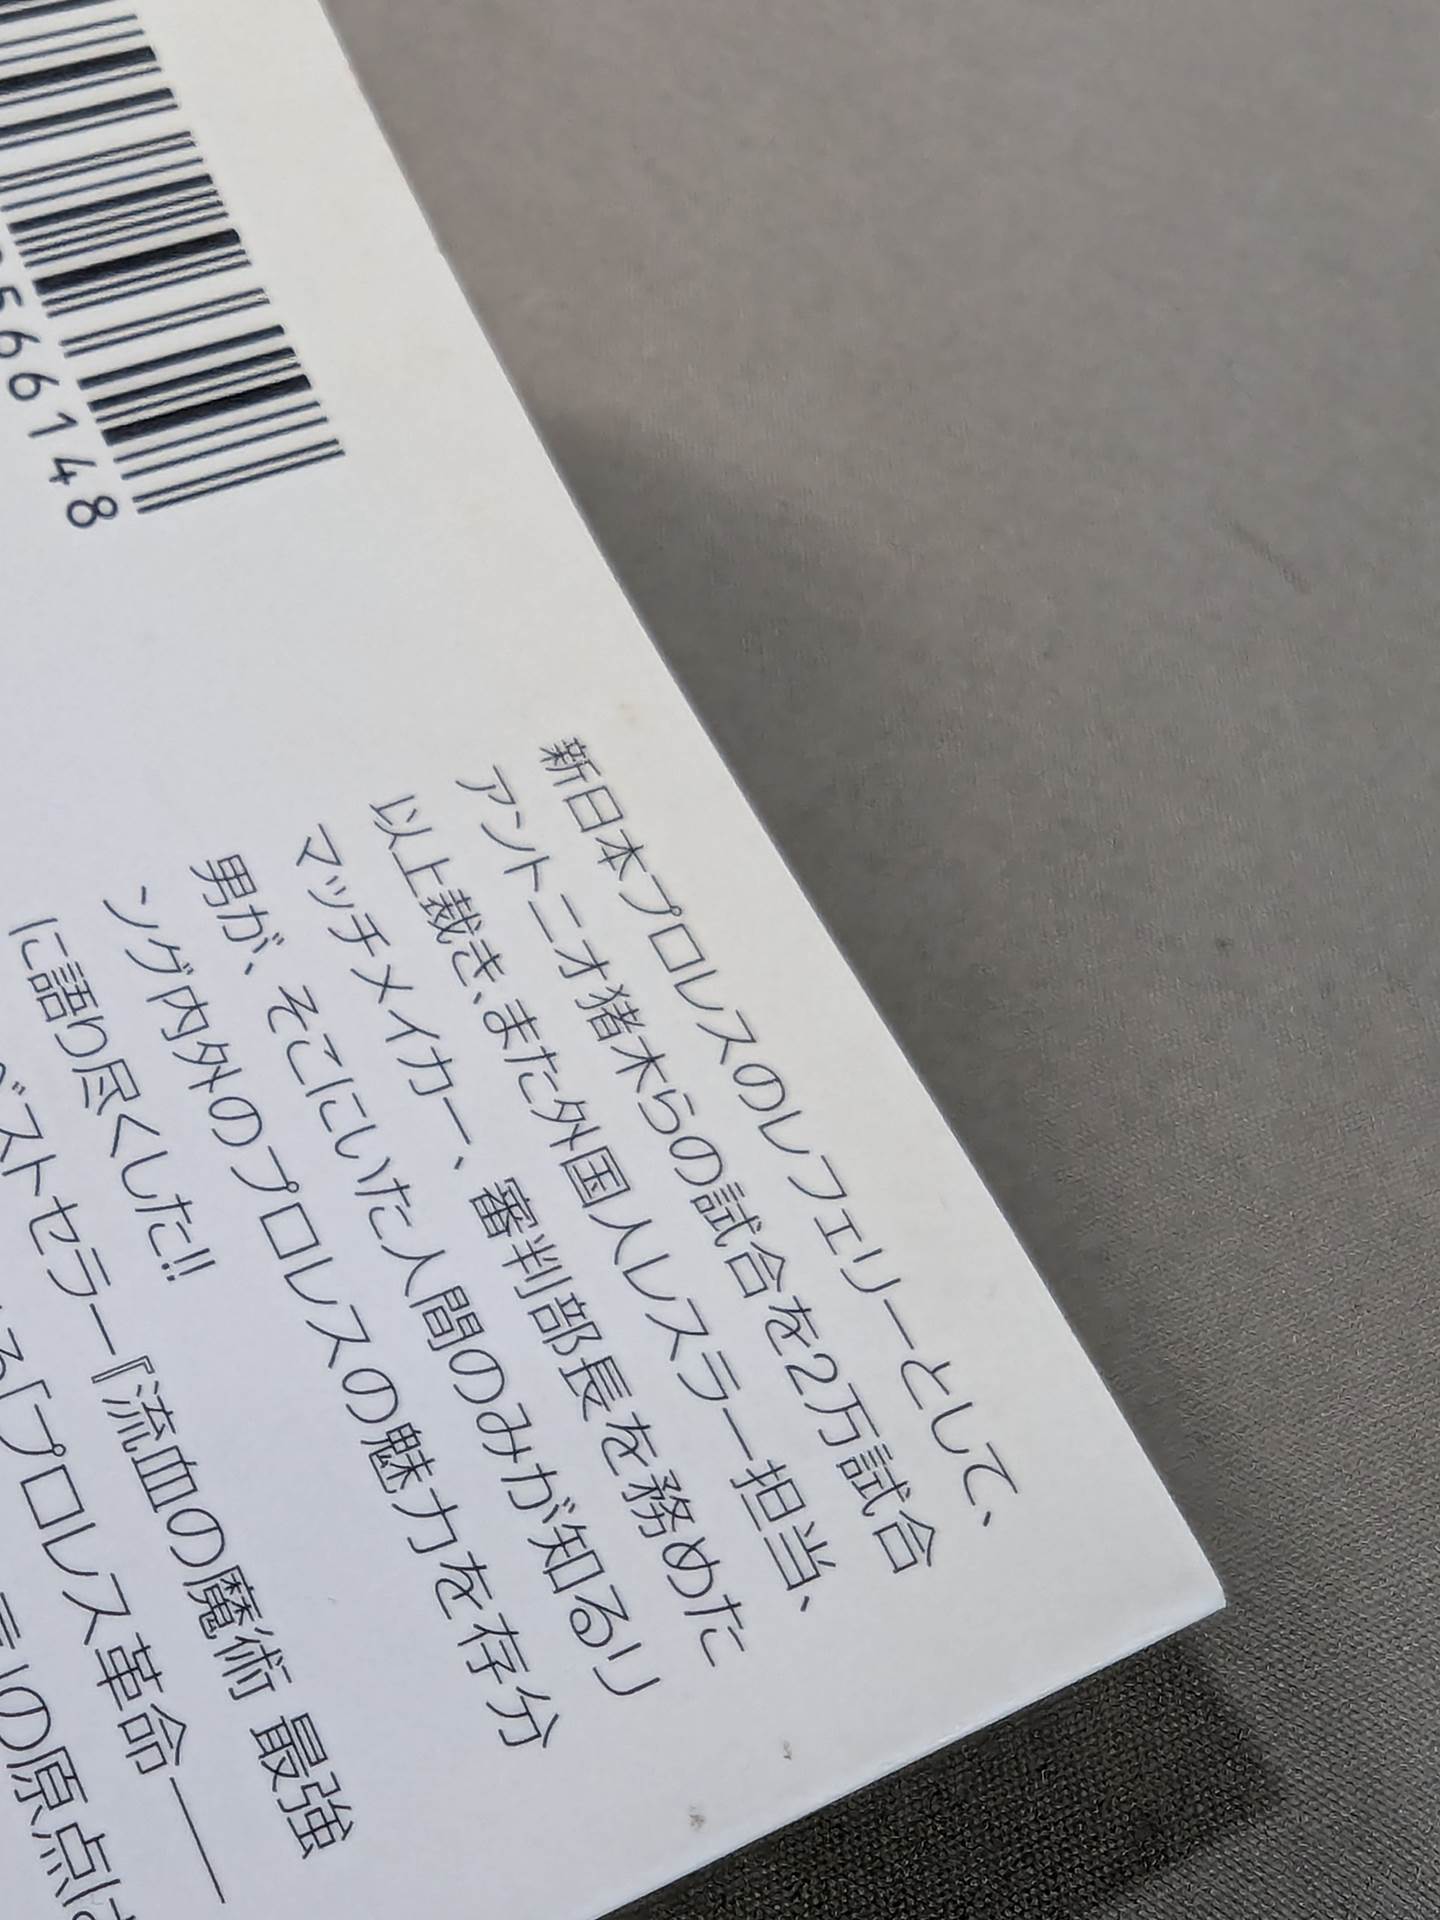 56148
新日本プロレスのレフェリーとして、
アントニオ猪木らの試合を2万試合
以上裁き、また外国人レスラー担当、
マッチメイカー、審判部長を務めた
男が、そこにいた人間のみが知るリ
ング内外のプロレスの魅力を存分
に語り尽くした!!
ベストセラー『流血の魔術 最強
る「プロレス革命――
の原点は